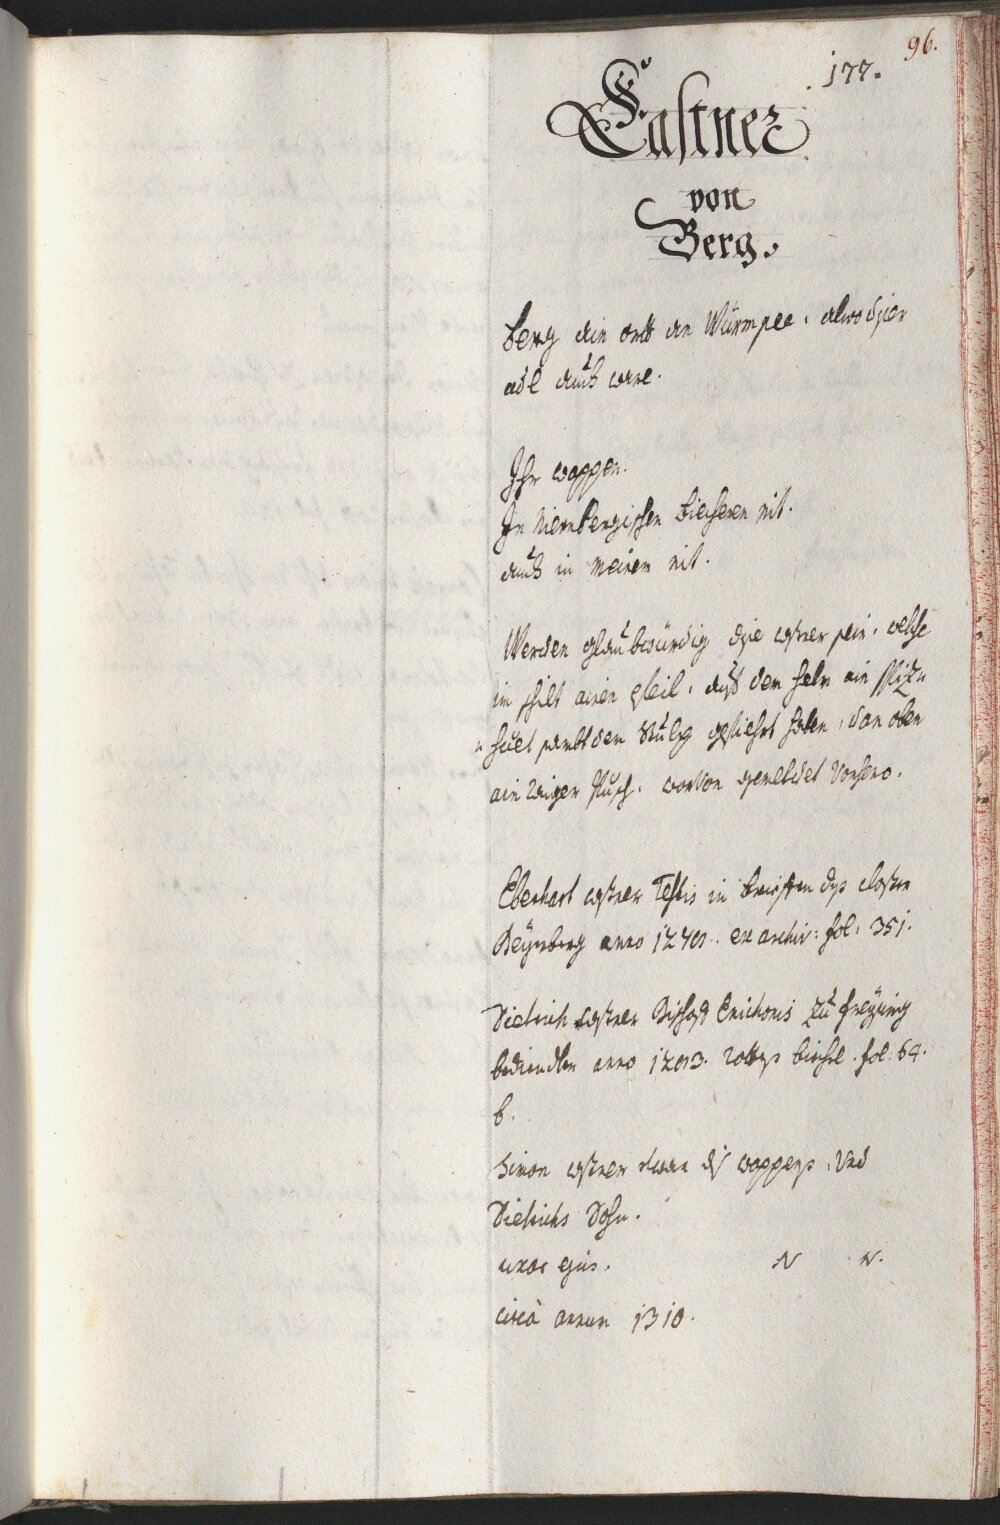 96.
177.
Castner
von
Berg.
Berg ain ortt an Würmsee. alwo diser
adl auch ware.
Ihr wappen.
In Niernbergischen Biecheren nit.
auch in meinen nit.
Werden glaubwürdig dise castner sein. welche
im schilt ainen pfeil. auf dem helm ain spizn
huet sambt den stulp gefiehrt haben, dan oben
ain pusch. worvon gemeldet vorhero.
Eberhart castner Testis in brieffen dess closters
Beyrberg anno 1270. ex archiv: fol: 351.
Dietrich castner Bischoff Enichonis zu freysing
bediendter anno 1283. biechl. fol. 64.
b.
Simon castner wappens. Und
Dietrichs Sohn.
uxor ejus. N N.
circà annum 1310.